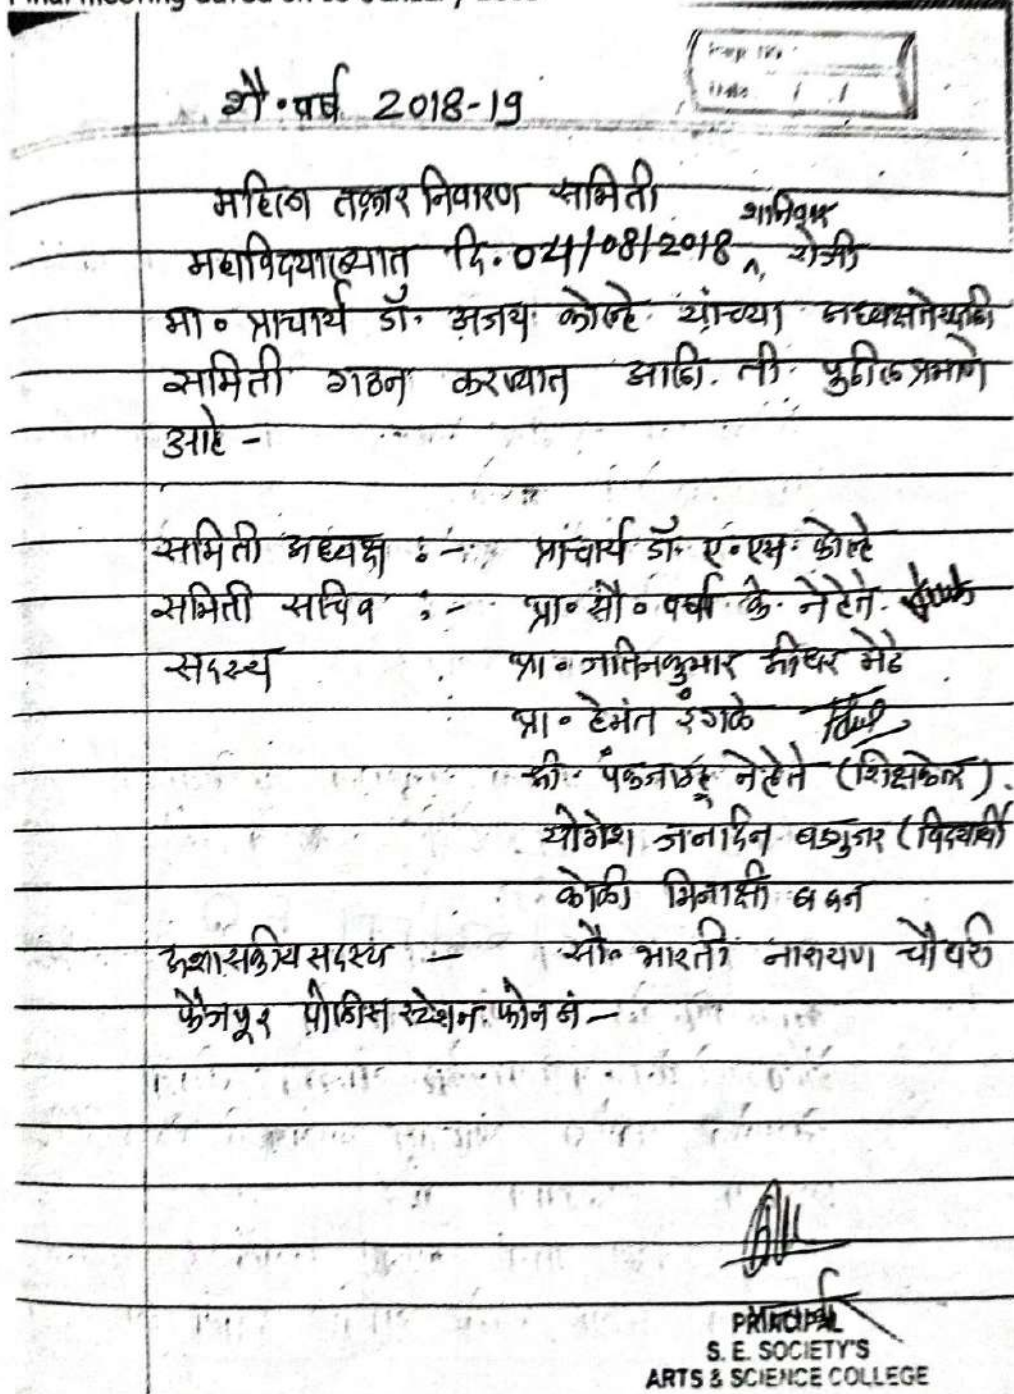 Page No.
Date / /
शै. वर्ष 2018-19
महिला तक्रार निवारण समिती
महाविद्यालयात दि. 04/08/2018 ^ शनिवार रोजी
मा. प्राचार्य डॉ. अजय कोल्हे यांच्या अध्यक्षतेखाली
समिती गठन करण्यात आली. ती पुढीलप्रमाणे
आहे -
समिती अध्यक्ष :- प्राचार्य डॉ. ए. एम. कोल्हे
समिती सचिव :- प्रा. सौ. वर्षा के. नेहेते
सदस्य प्रा. जतिनकुमार श्रीधर मेढे
प्रा. हेमंत इंगळे
श्री. नेहेते (शिक्षकेतर).
योगेश जनार्दन बडगुजर (विद्यार्थी
कोळी मिनाक्षी
सदस्य - सौ. भारती नारायण चौधरी
फैजपूर पोलीस स्टेशन फोन नं -
PRINCIPAL
S. E. SOCIETY'S
ARTS & SCIENCE COLLEGE